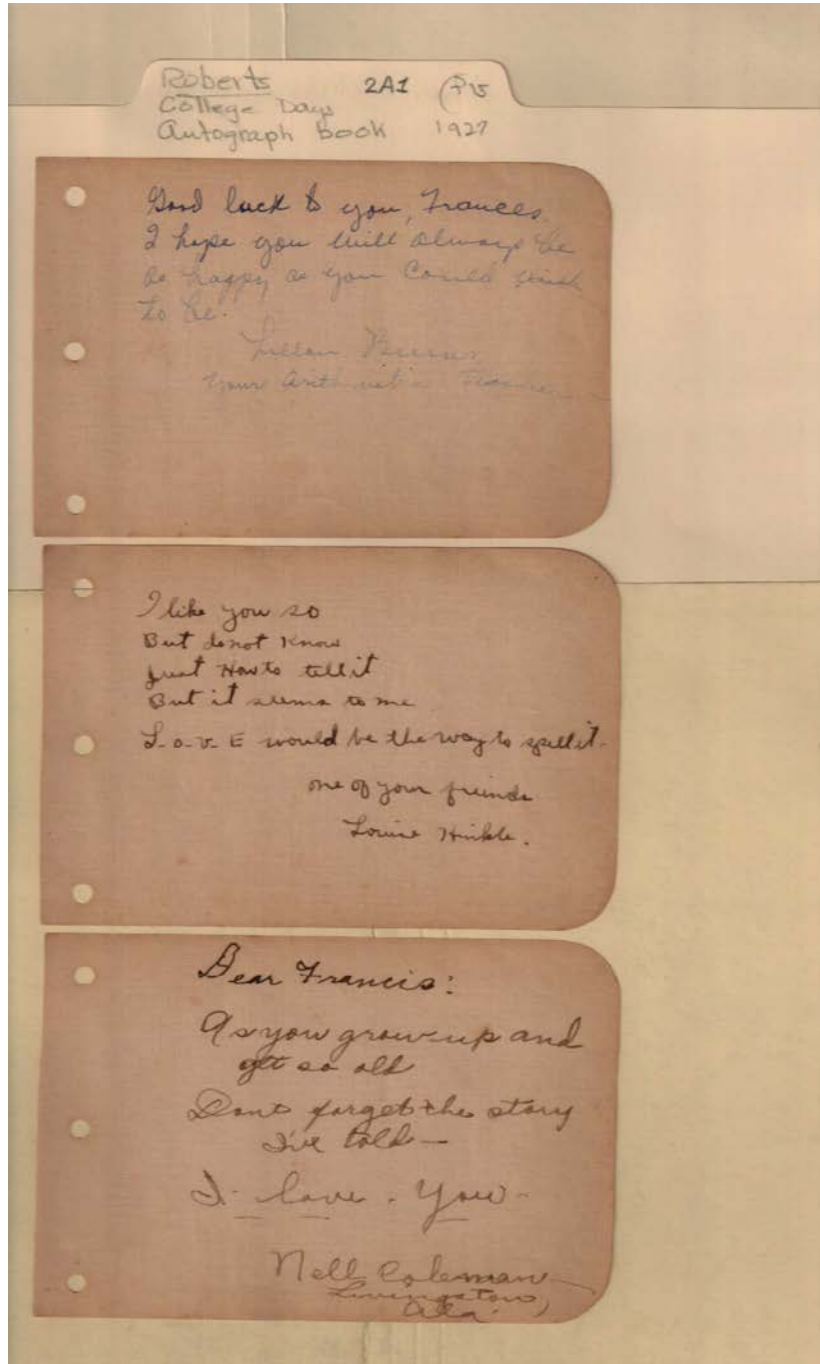 Roberts 2A1
College Days
Autograph Book 1927
Good luck to you, Frances.
I hope you will always be
as happy as you could wish
to be.
your arithmetic Teacher
I like you so
But do not Know
just How to tell it
But it seems to me
L-o-v-E would be the way to spell it.
one of your friends
Louise Hinkle.
Dear Francis:
As you grow up and
get so old
Dont forget the story
I've told —
I - love - You -
Nell Coleman
Livingston,
Ala.